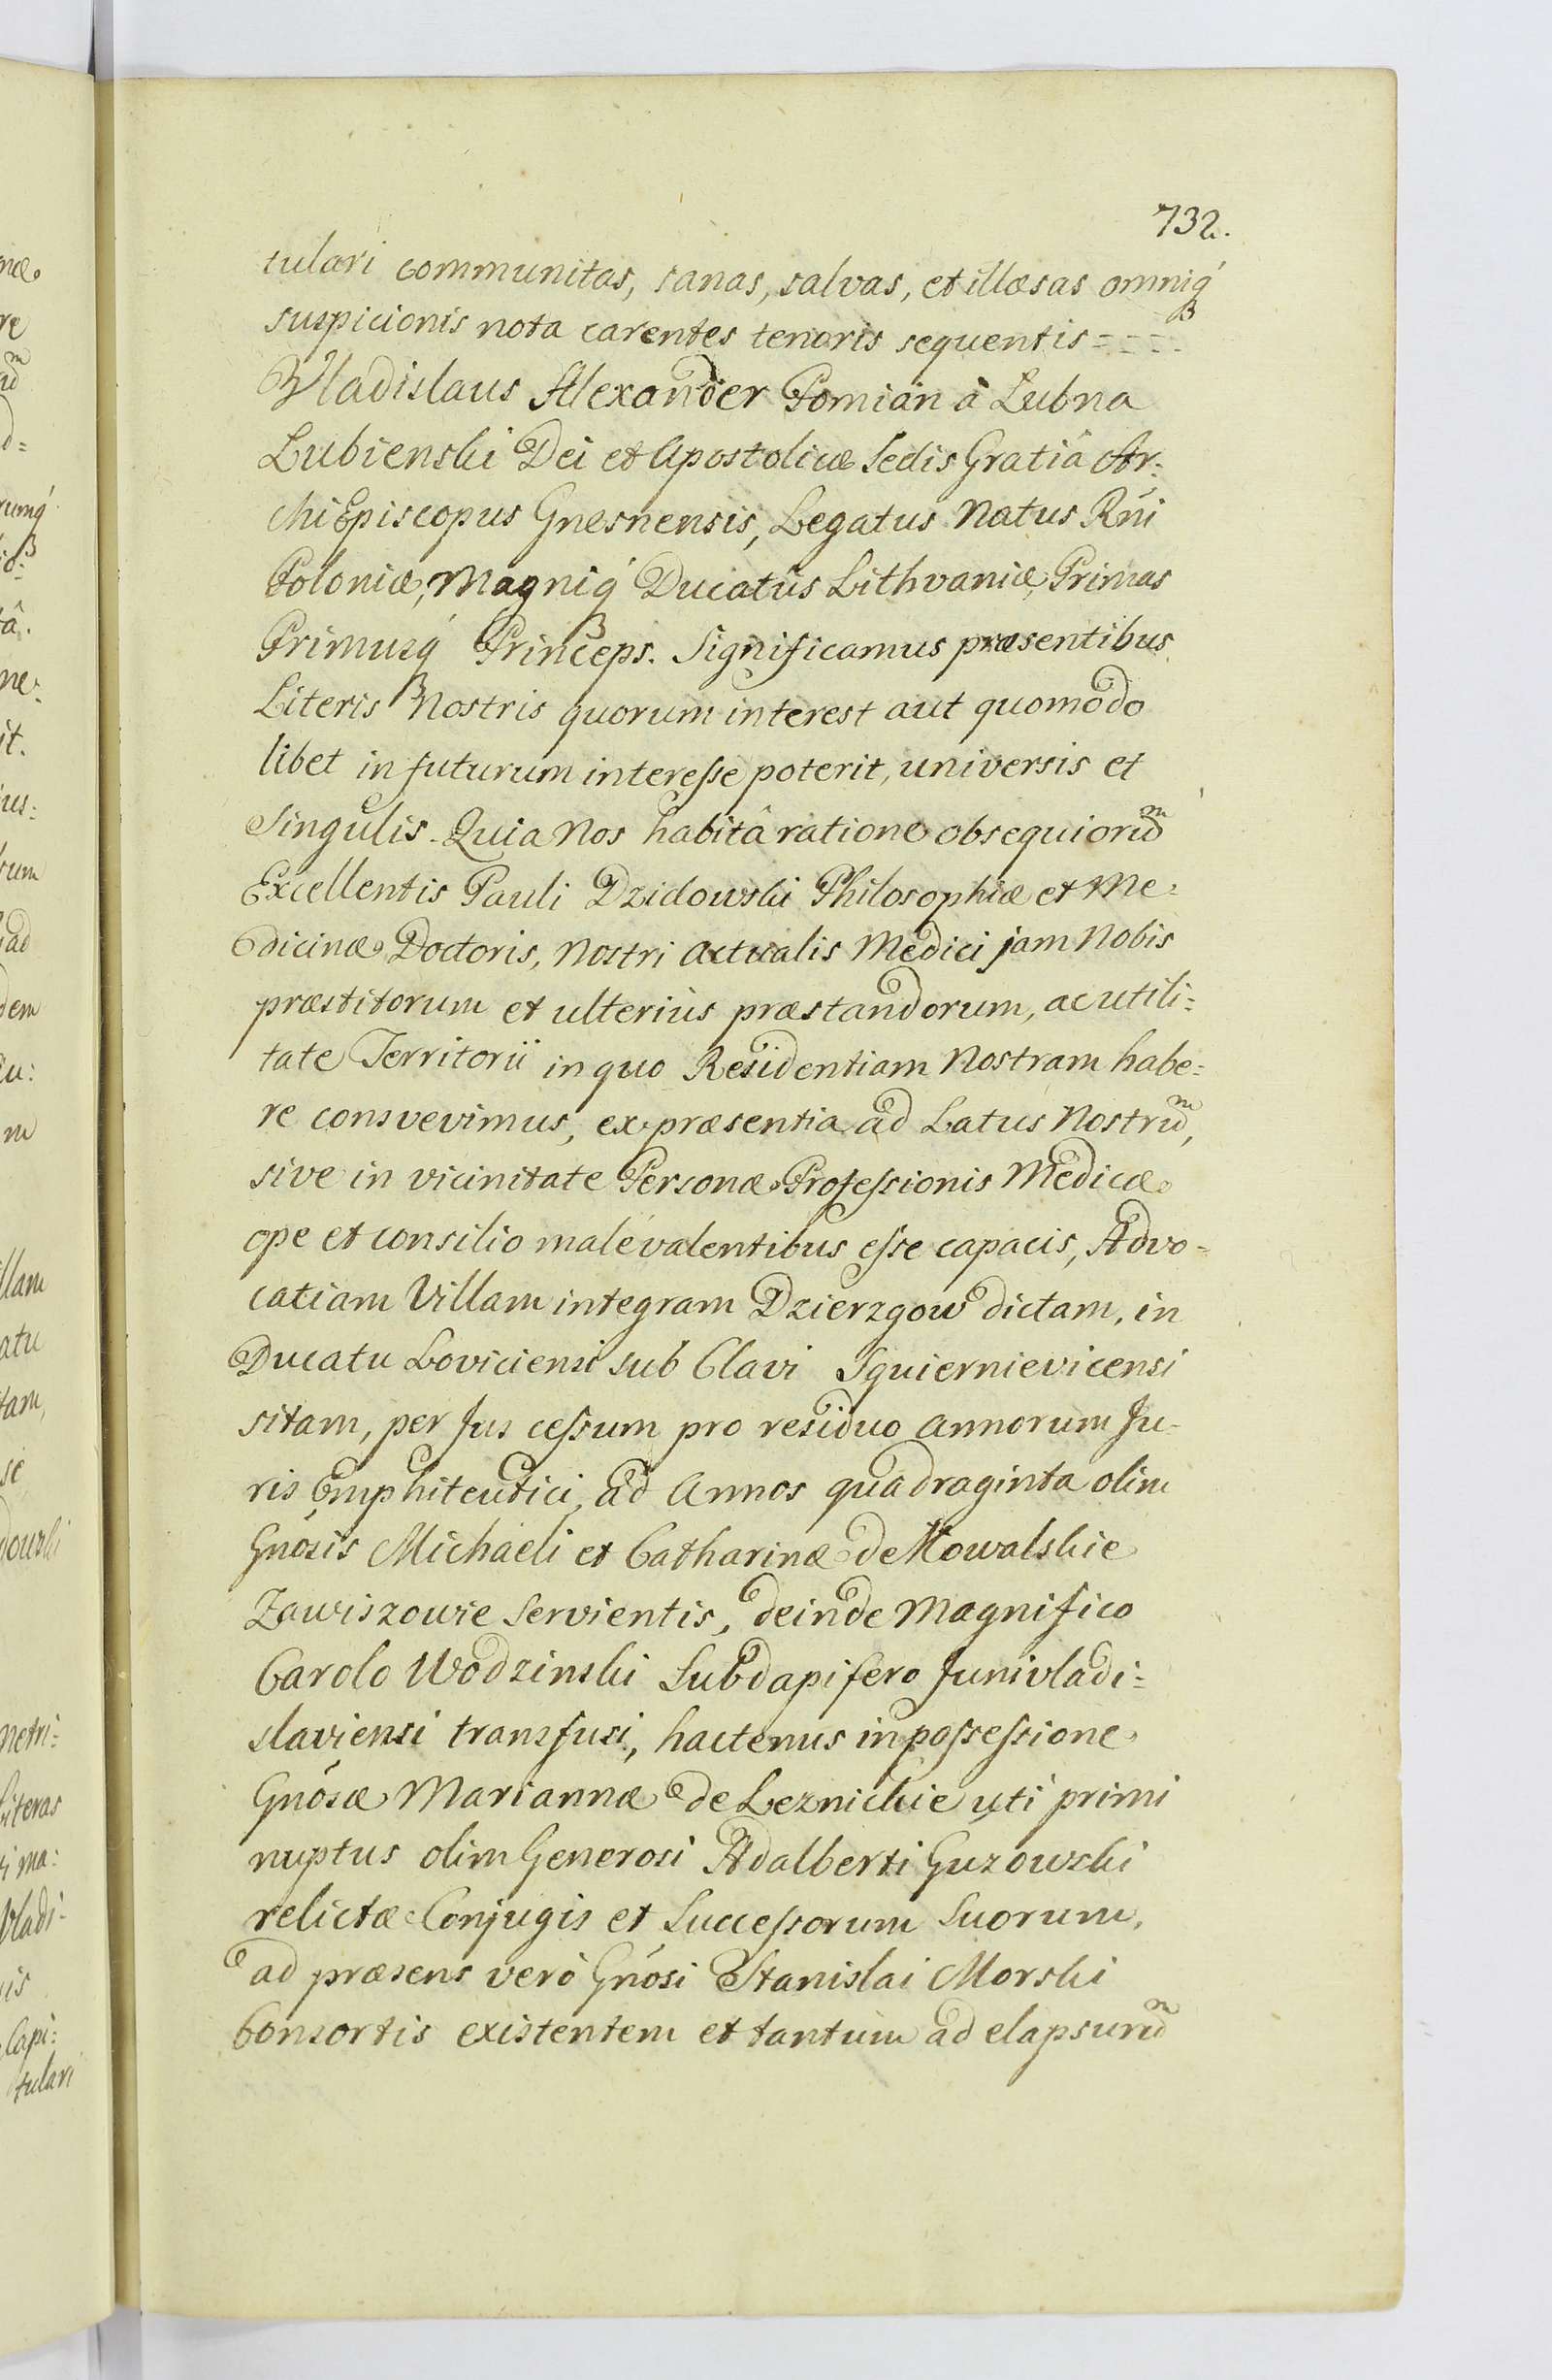 732.
tulari communitas, sanas, salvas, et illæsas omniq́
suspicionis nota carentes tenoris sequentis = = = =
Vladislaus Alexander Pomian à Lubna
Lubienski Dei et Apostolicæ Sedis Gratiâ Ar:
chiEpiscopus Gnesnensis, Legatus Natus Rńi
Poloniæ, Magniq́ Ducatûs Lithvaniæ, Primas
Primusq́ Princeps. Significamus præsentibus
Literis Nostris quorum interest aut quomodo
libet in futurum interesse poterit, universis et
Singulis. Quia Nos habitâ ratione obsequiorũ
Excellentis Pauli Dzidowski Philosophiæ et Me=
dicinæ Doctoris, Nostri actualis Medici jam Nobis
præstitorum et ulteriùs præstandorum, ac utili=
tate Territorii in quo Residentiam Nostram habe=
re consvevimus, ex præsentia ad Latus Nostrũ,
sive in vicinitate Personæ Professionis Medicæ
ope et consilio malè valentibus esse capacis, Advo=
catiam Villam integram Dzierzgow dictam, in
Ducatu Loviciensi sub Clavi Squiernievicensi
sitam, per Jus cessum pro residuo annorum Ju-
ris Emphiteutici, ad Annos quadraginta olim
Gnósis Michaeli et Catharinæ de Kowalskie
Zawiszowie Servientis, deinde Magnifico
Carolo Wodzinski Subdapifero Junivladi=
slaviensi transfusi, hactenus in possessione
Gnósæ Mariannæ de Leznickie uti primi
nuptus olim Generosi Adalberti Guzowski
relictæ Conjugis et Successorum Suorum,
ad præsens verò Gnósi Stanislai Morski
Consortis existentem et tantum ad elapsurũ